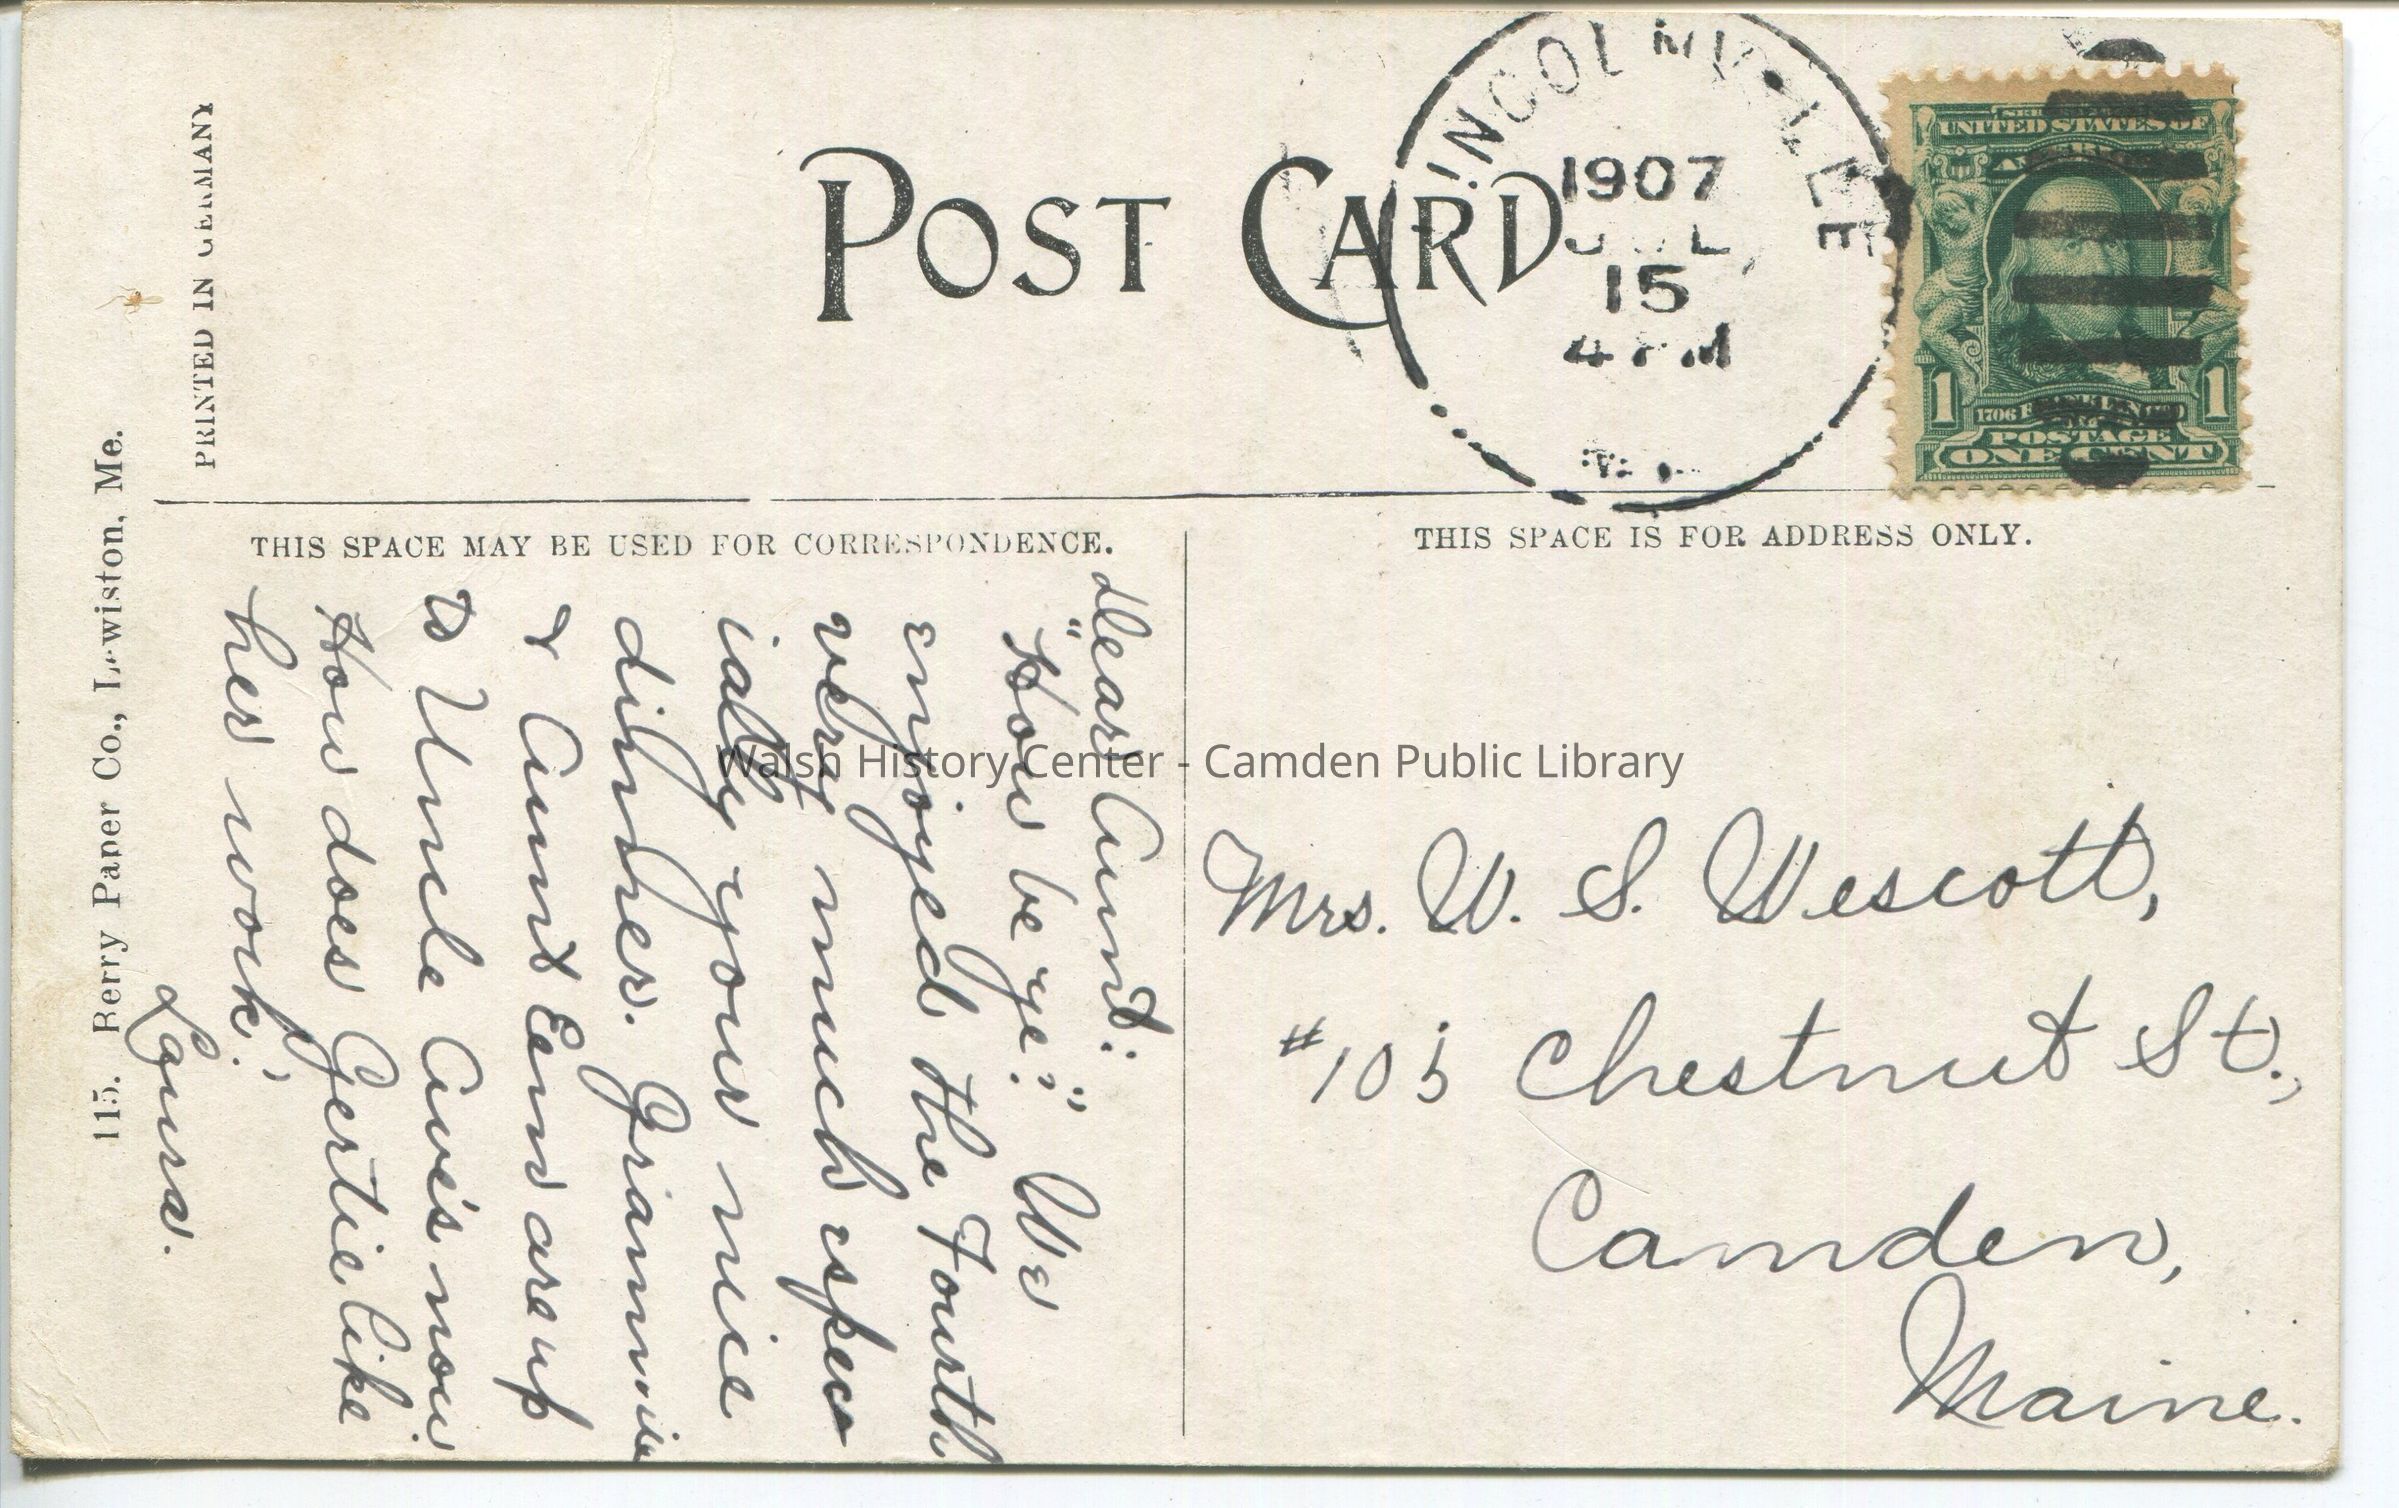 POST CARD
LINCOLNVILLE
1907
JUL
15
4 PM
UNITED STATES OF
1 1
1706
POSTAGE
ONE CENT
PRINTED IN GERMANY
115. Berry Paper Co., Lewiston, Me.
THIS SPACE MAY BE USED FOR CORRESPONDENCE.
THIS SPACE IS FOR ADDRESS ONLY.
Dear Aunt:
"How be ye?" We
enjoyed the Fourth
very much espec
ially your nice
dinner. Grannie
& Aunt Em are up
to Uncle Aw's now.
How does Gertie like
her work?
Laura.
Mrs. W. S. Wescott,
#105 Chestnut St.,
Camden,
Maine.
Walsh History Center - Camden Public Library